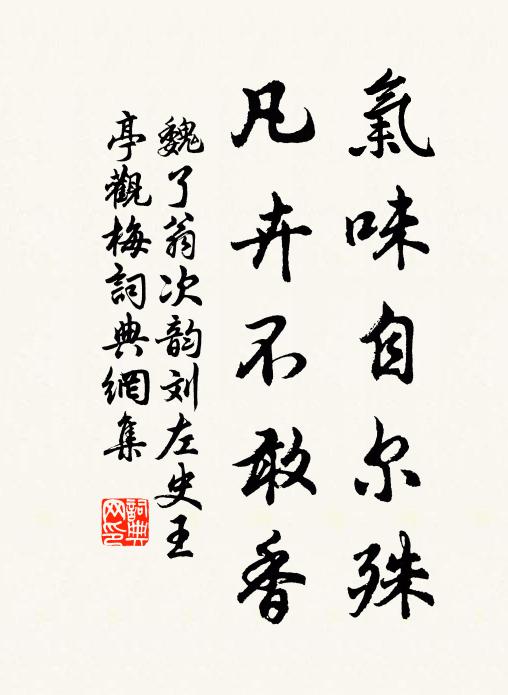 氣味自尔殊
凡卉不敢香
魏了翁次韵刘左史王
亭觀梅詞典網集
詞典
网印